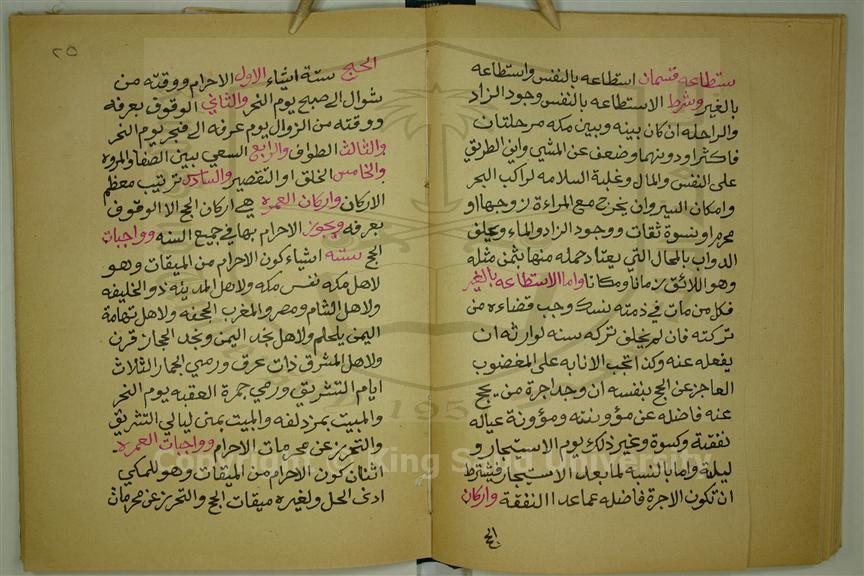 ستطاعه قسمان استطاعه بالنفس واستطاعه
بالغير وشرط الاستطاعه بالنفس وجود الزاد
والراحله ان كان بينه وبين مكه مرحلتان
فاكثر او دونهما وضعف عن المشي وامن الطريق
على النفس والمال وغلبة السلامه لراكب البحر
وامكان السير وان يخرج مع المراءة زوجها او
محرم او نسوة ثقات ووجود الزاد والماء وعلف
الدواب بالمحال التي يعتاد حمله منها بثمن مثله
وهو اللائق زمانا ومكانا واما الاستطاعه بالغير
فكل من مات في ذمته نسك وجب قضاءه من
تركته فان لم يخلق تركه سنه لوارثه ان
يفعله عنه وكذا تجب الانابه على المعضوب
العاجز عن الحج بنفسه ان وجد اجرة من يحج
عنه فاضله عن مؤونته ومؤونة عياله
نفقة وكسوة وغير ذلك يوم الاستيجار و
ليلة واما بالنسبة لما بعد الاستيجار فيشترط
ان تكون الاجرة فاضله عما عدا النفقة واركان
الحج
٢٥
الحج ستة اشياء الاول الاحرام ووقته من
شوال الى صبح يوم النحر والثاني الوقوف بعرفه
ووقته من الزوال يوم عرفه الى فجر يوم النحر
والثالث الطواف والرابع السعي بين الصفا والمروه
والخامس الحلق او التقصير والسادس ترتيب معظم
الاركان واركان العمره هي اركان الحج الا الوقوف
بعرفه ويجوز الاحرام بها في جميع السنه وواجبات
الحج سته اشياء كون الاحرام من الميقات وهو
لاهل مكه نفس مكه ولاهل المدينه ذو الخليفه
ولاهل الشام ومصر والمغرب الجحفه ولاهل تهامة
اليمن يلملم ولاهل نجد اليمن ونجد الحجاز قرن
ولاهل المشرق ذات عرق ورمي الجمار الثلاث
ايام التشريق ورمي جمرة العقبه يوم النحر
والمبيت بمزدلفه والمبيت بمنى ليالي التشريق
والتحرز عن محرمات الاحرام وواجبات العمره
اثنان كون الاحرام من الميقات وهو للمكي
ادنى الحل ولغيره ميقات الحج والتحرز عن محرمات
Copyright © King Saud University
195